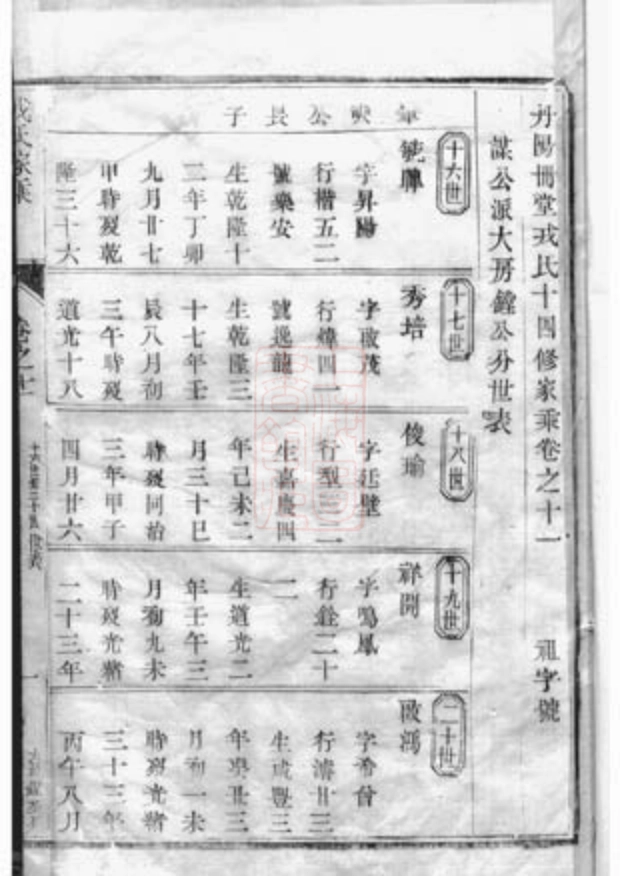 丹陽冊堂戎氏十四修家乘卷之十一
祖字號
謀公派大房鏜公分世表
十六世
公長子
字昇陽
行楷五二
號樂安
生乾隆十
二年丁卯
九月廿七
甲時歿乾
隆三十六
十七世
秀培
字啟茂
行煒四一
號逸龍
生乾隆三
十七年壬
辰八月初
三午時歿
道光十八
十八世
俊瑜
字廷璧
行型三二
生嘉慶四
年己未二
月三十巳
時歿同治
三年甲子
四月廿六
十九世
祥開
字鳴鳳
行銓二十
二
生道光二
年壬午三
月初九未
時歿光緒
二十三年
二十世
啟鴻
字希曾
行濤廿三
生咸豐三
年癸丑三
月初一未
時歿光緒
三十三年
丙午八月
氏家乘
卷之十一
十六世至二十世世表
一